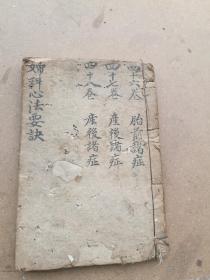 四十六卷 胎前諸症
四十七卷 產後諸症
四十八卷 產後諸症
婦科心法要訣